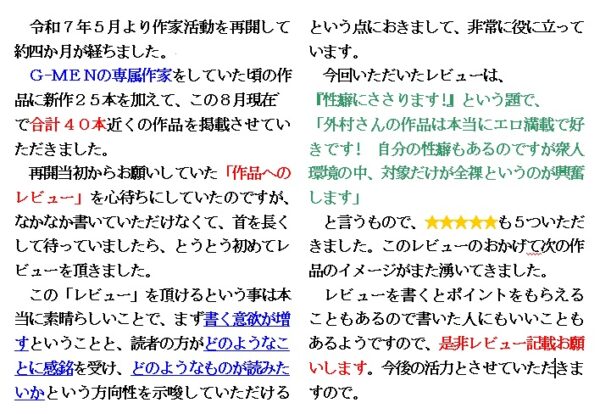 令和７年５月より作家活動を再開して
約四か月が経ちました。
Ｇ－ＭＥＮの専属作家をしていた頃の作
品に新作２５本を加えて、この８月現在
で合計４０本近くの作品を掲載させてい
ただきました。
再開当初からお願いしていた「作品への
レビュー」を心待ちにしていたのですが、
なかなか書いていただけなくて、首を長く
して待っていましたら、とうとう初めてレ
ビューを頂きました。
この「レビュー」を頂けるという事は本
当に素晴らしいことで、まず書く意欲が増
すということと、読者の方がどのようなこ
とに感銘を受け、どのようなものが読みた
いかという方向性を示唆していただける
という点におきまして、非常に役に立って
います。
今回いただいたレビューは、
『性癖にささります！』という題で、
「外村さんの作品は本当にエロ満載で好
きです！　自分の性癖もあるのですが衆人
環境の中、対象だけが全裸というのが興奮
します」
と言うもので、★★★★★も５ついただ
きました。このレビューのおかげて次の作
品のイメージがまた湧いてきました。
レビューを書くとポイントをもらえる
こともあるので書いた人にもいいことも
あるようですので、是非レビュー記載お願
いします。今後の活力とさせていただきま
すので。